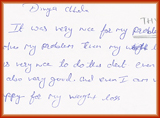 Divya
It was very nice for my problem
my problem Even my weight
s very nice to do this diet even
also very good. And even I am v
appy for my weight loss